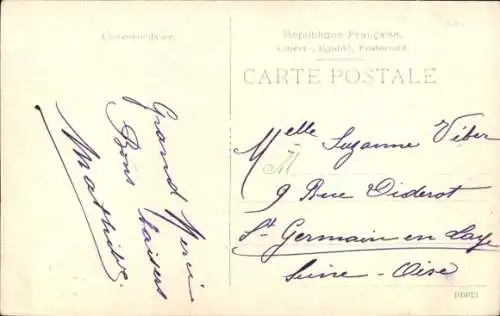 Correspondance.
République Française.
Liberté, Egalité, Fraternité
CARTE POSTALE
Grand Merci
Bons baisers
Mathilde
Melle Suzanne Viber
9 Rue Diderot
St Germain en Laye
Seine-Oise